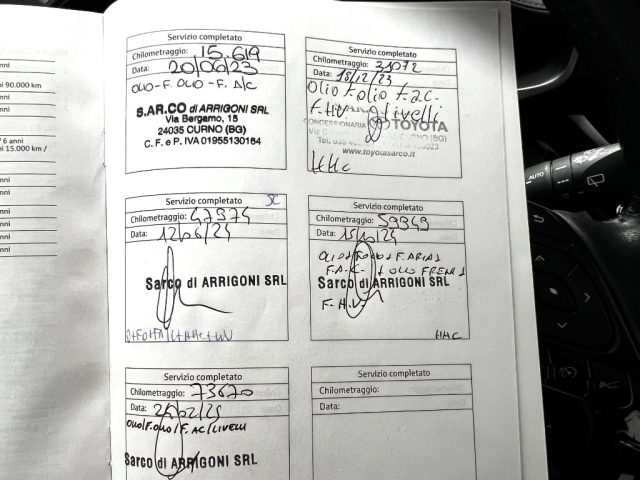 90.000 km
anni
anni
/ 6 anni
15.000 km /
anni
anni
anni
anni
Servizio completato
Chilometraggio: 15.619
Data: 20/06/23
OLIO - F. OLIO - F. A/C
S.AR.CO di ARRIGONI SRL
Via Bergamo, 15
24035 CURNO (BG)
C. F. e P. IVA 01955130164
Servizio completato
Chilometraggio: 31072
Data: 18/12/23
Olio F.olio F.a.C.
F.H.V. livelli
CONCESSIONARIA TOYOTA
CURNO (BG)
www.toyotasarco.it
HHC
Servizio completato
SC
Chilometraggio: 47974
Data: 12/06/24
Sarco di ARRIGONI SRL
Servizio completato
Chilometraggio: 59349
Data: 15/10/24
F.A.C. OLIO FRENI
Sarco di ARRIGONI SRL
F.H.V.
HHC
Servizio completato
Chilometraggio: 73670
Data: 25/02/25
OLIO/F.OLIO/F.AC/LIVELLI
Sarco di ARRIGONI SRL
Servizio completato
Chilometraggio:
Data:
AUTO